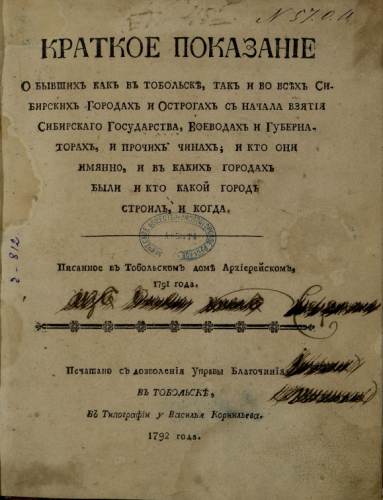 N 57.0.
КРАТКОЕ ПОКАЗАНІЕ
О БЫВШИХЪ КАКЪ ВЪ ТОБОЛЬСКѢ, ТАКЪ И ВО ВСѢХЪ СИ-
БИРСКИХЪ ГОРОДАХЪ И ОСТРОГАХЪ СЪ НАЧАЛА ВЗЯТІЯ
СИБИРСКАГО ГОСУДАРСТВА, ВОЕВОДАХЪ И ГУБЕРНА-
ТОРАХЪ, И ПРОЧИХЪ ЧИНАХЪ; И КТО ОНИ
ИМЯННО, И ВЪ КАКИХЪ ГОРОДАХЪ
БЫЛИ И КТО КАКОЙ ГОРОДЪ
СТРОИЛЪ, И КОГДА.
2-812
Писанное въ Тобольскомъ домѣ Архіерейскомъ,
1791 года.
Печатано съ дозволенія Управы Благочинія
ВЪ ТОБОЛЬСКѢ,
Въ Типографіи у Василья Корнильева.
1792 года.